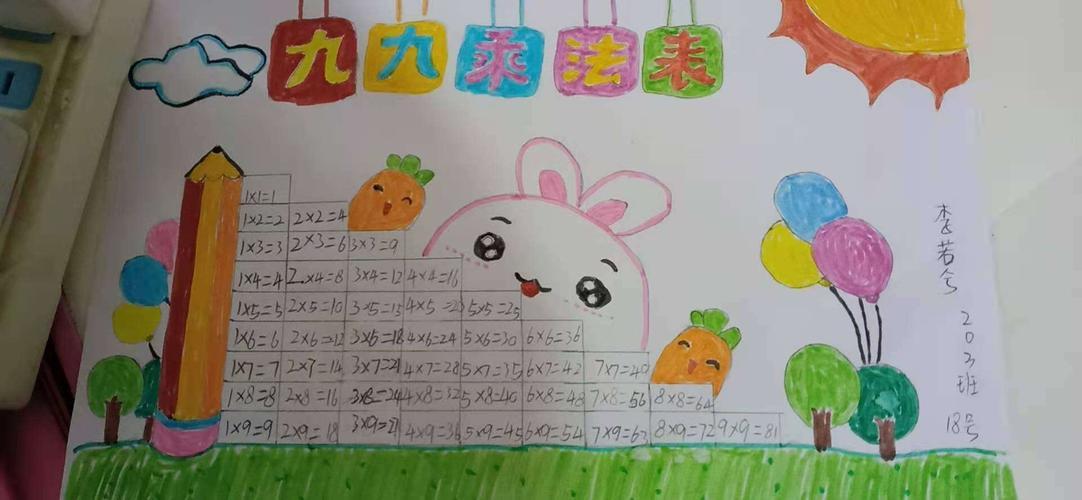 九九乘法表
1×1=1
1×2=2 2×2=4
1×3=3 2×3=6 3×3=9
1×4=4 2×4=8 3×4=12 4×4=16
1×5=5 2×5=10 3×5=15 4×5=20 5×5=25
1×6=6 2×6=12 3×6=18 4×6=24 5×6=30 6×6=36
1×7=7 2×7=14 3×7=21 4×7=28 5×7=35 6×7=42 7×7=49
1×8=8 2×8=16 3×8=24 4×8=32 5×8=40 6×8=48 7×8=56 8×8=64
1×9=9 2×9=18 3×9=27 4×9=36 5×9=45 6×9=54 7×9=63 8×9=72 9×9=81
李若兮
203班
18号